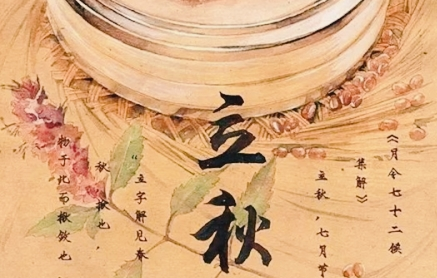 立秋
《月令七十二候
集解》
立秋，七月节
“立字解见春
秋，揪也，
物于此而揪敛也